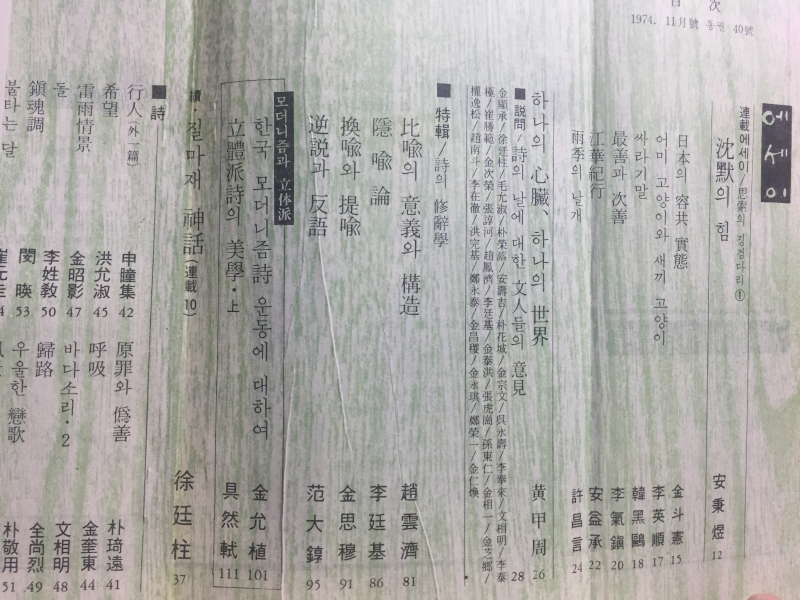 目 次
1974. 11月號 통권 40號
에세이
連載에세이/思索의 징검다리 ①
沈默의 힘 安秉煜 12
日本의 容共 實態 金斗憲 15
어미 고양이와 새끼 고양이 李英順 17
싸라기말 韓黑鷗 18
最善과 次善 李氣鎭 20
江華紀行 安益承 22
雨季의 날개 許昌言 24
하나의 心臟、하나의 世界 黃甲周 26
■ 說問/詩의 날에 대한 文人들의 意見 28
金顯承/徐廷柱/毛允淑/朴榮濬/安壽吉/朴花城/金宗文/吳永壽/李奉來/文相明/李泰
極/崔勝範/金次榮/張諄河/趙鳳濟/李廷基/金泰洪/張虎崗/孫東仁/金相一/金芝鄕/
權逸松/趙南斗/李在徹/洪完基/鄭永泰/金昌稷/金永琪/鄭榮一/金仁煥
■ 特輯/詩의 修辭學
比喩의 意義와 構造 趙雲濟 81
隱喩論 李廷基 86
換喩와 提喩 金思穆 91
逆說과 反語 范大錞 95
모더니즘과 立体派
한국 모더니즘詩 운동에 대하여 金允植 101
立體派詩의 美學・上 具然軾 111
續・질마재 神話(連載 10) 徐廷柱 37
■ 詩
行人(外一篇) 申瞳集 42
原罪와 僞善 朴琦遠 41
希望 洪允淑 45
呼吸 金奎東 44
雷雨情景 金昭影 47
바다소리・2 文相明 48
돌 李姓敎 50
歸路 全尚烈 49
鎭魂調 閔暎 53
우울한 戀歌 朴敬用 51
불타는 달